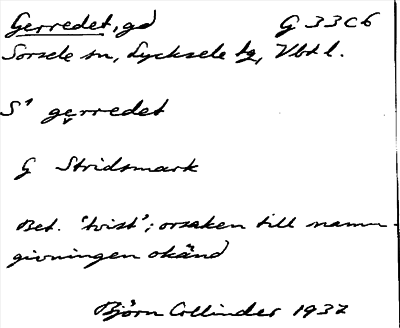 Gerredet, gd G 33 C 6
Sorsele sn, Lycksele tg, Vbt l.
S¹ gẹrredet
G Stridsmark
Bet. 'tvist'; orsaken till namn-
givningen okänd
Björn Collinder 1937